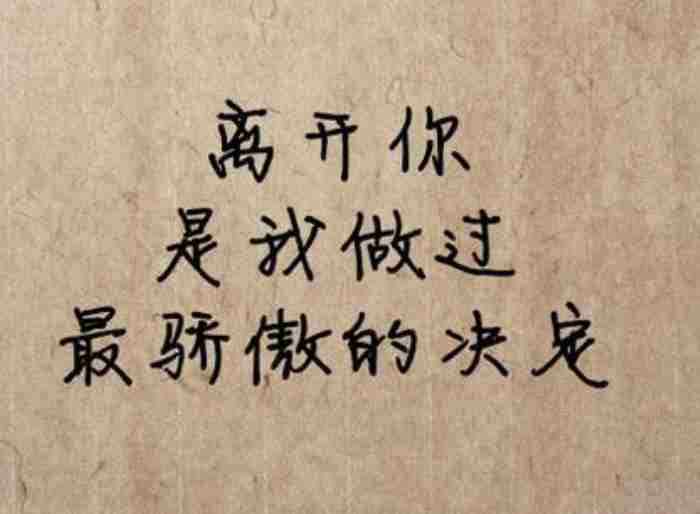 离开你
是我做过
最骄傲的决定